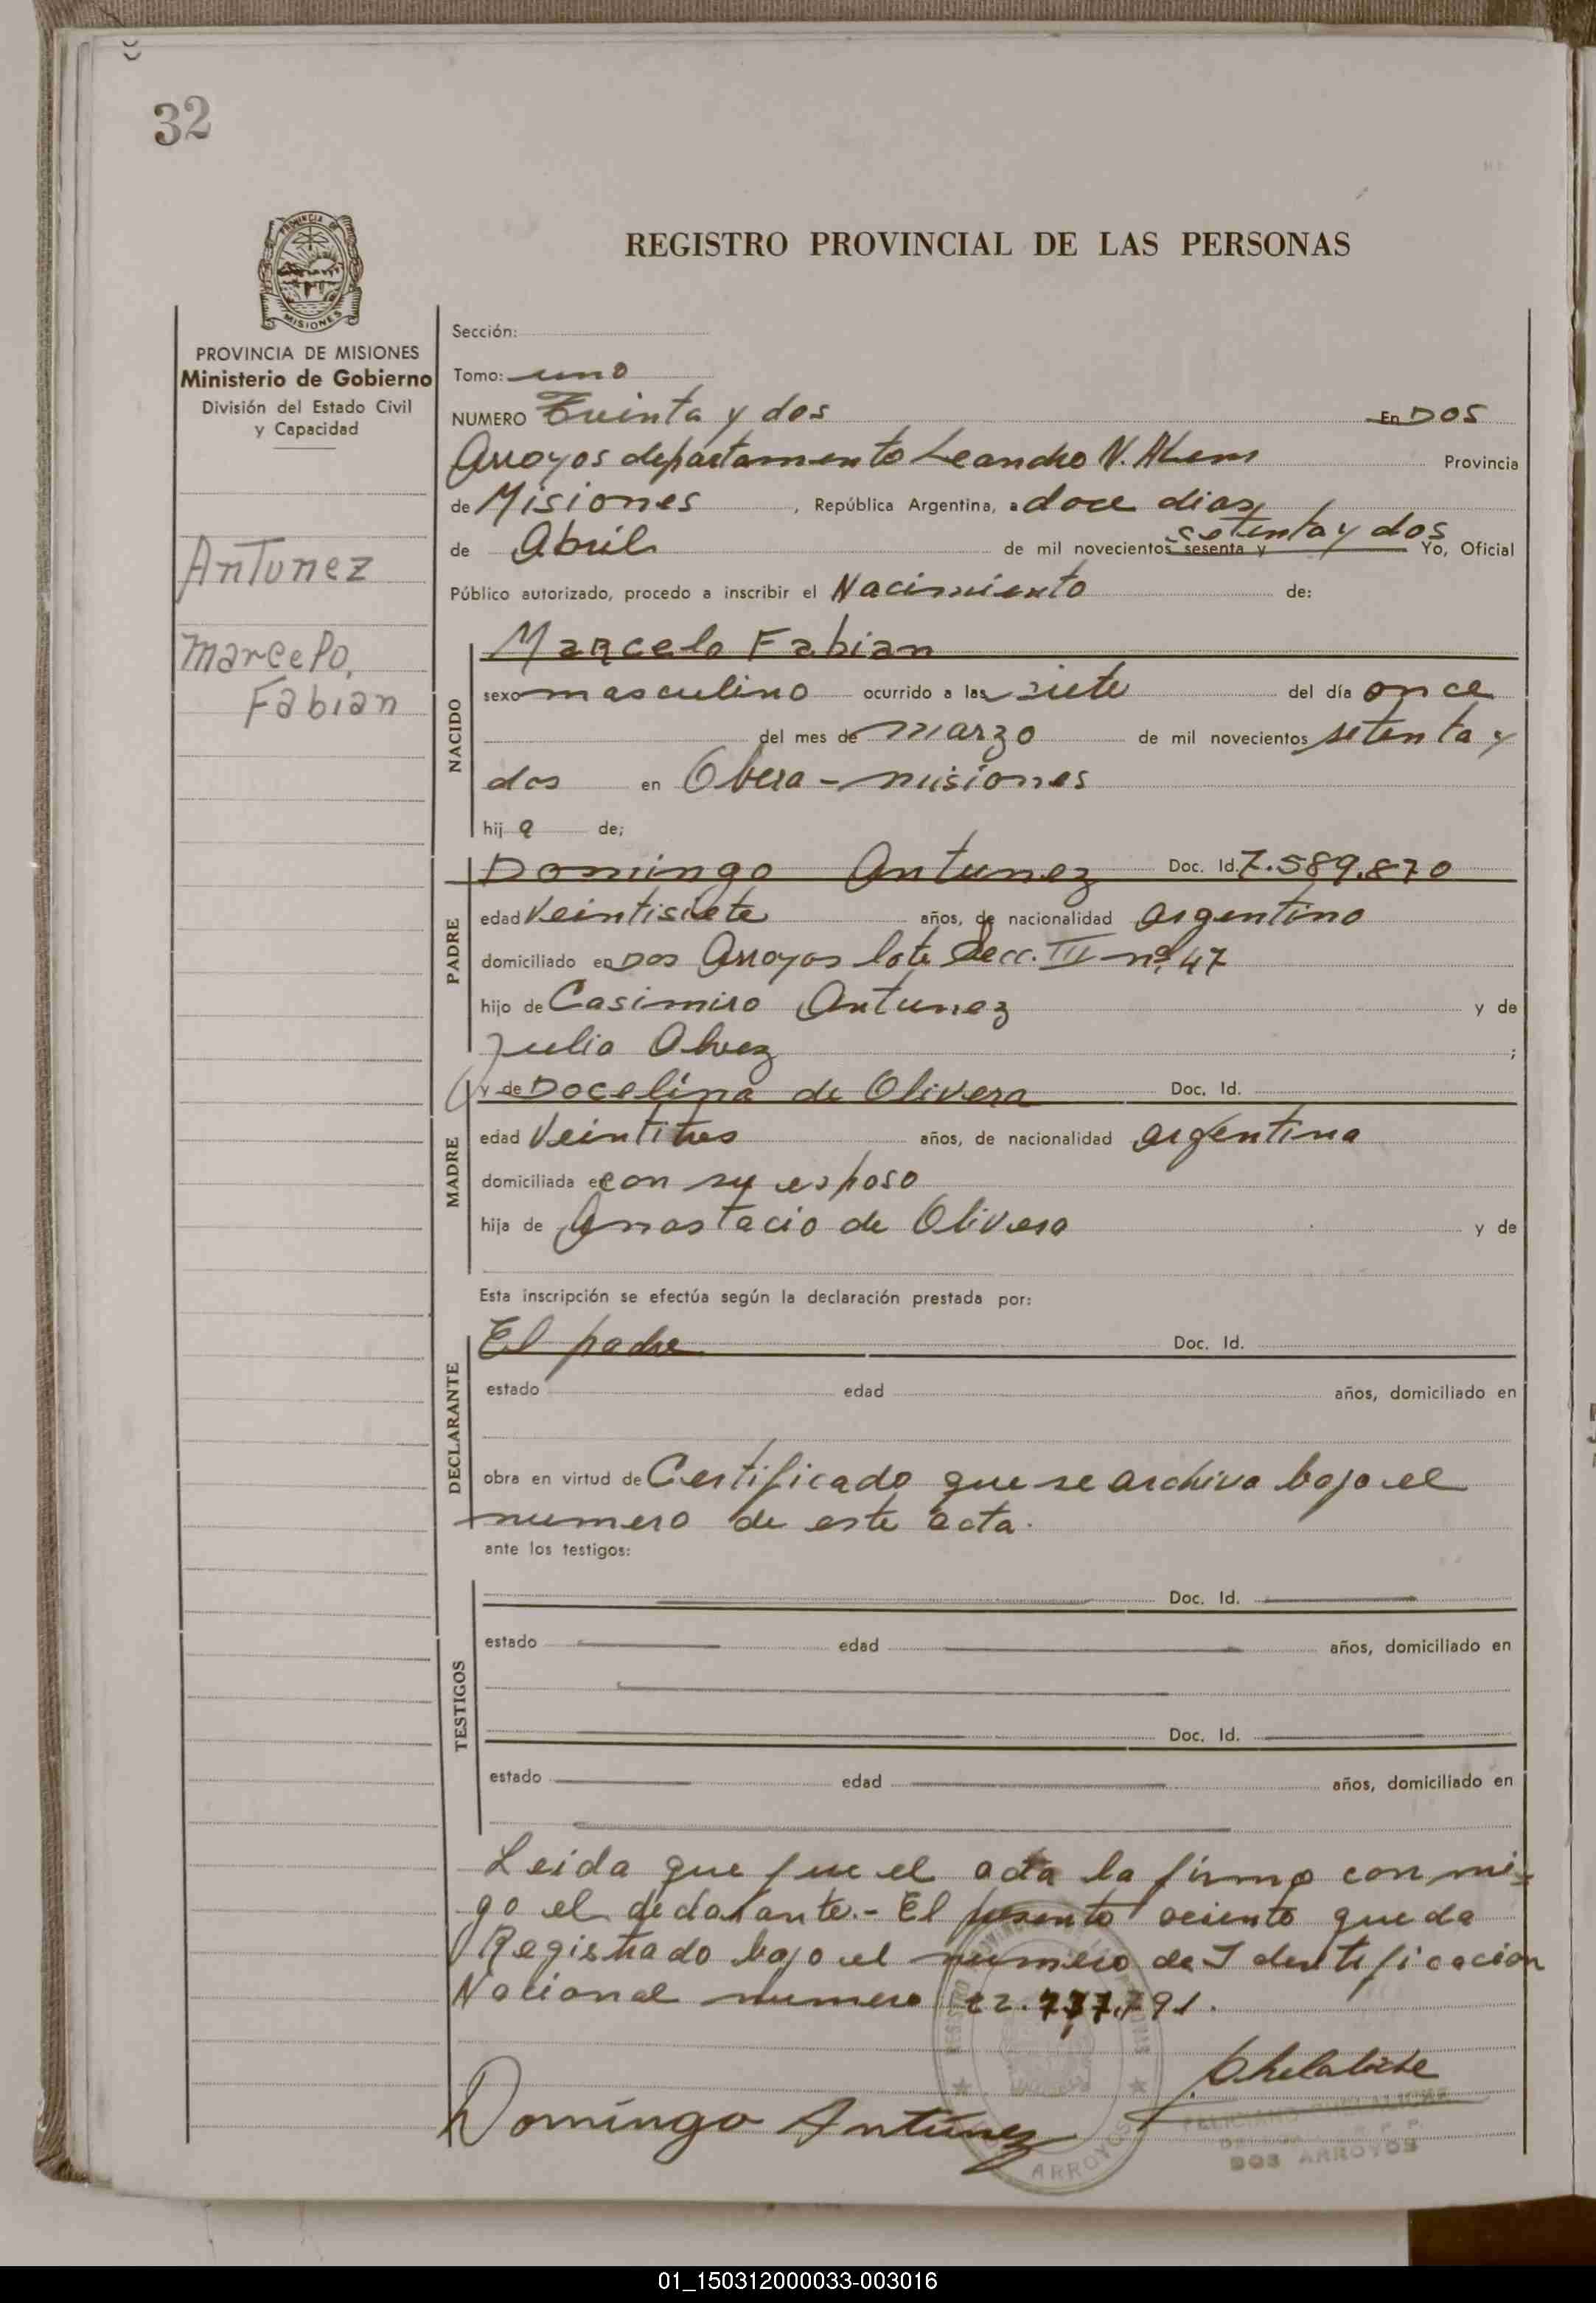 32
PROVINCIA DE
MISIONES
REGISTRO PROVINCIAL DE LAS PERSONAS
PROVINCIA DE MISIONES
Ministerio de Gobierno
División del Estado Civil
y Capacidad
Antunez
Marcelo,
Fabian
Sección:
Tomo: uno
NUMERO Treinta y dos En DOS
Arroyos departamento Leandro N. Alem Provincia
de Misiones, República Argentina, a doce dias
de Abril de mil novecientos sesenta y setenta y dos Yo, Oficial
Público autorizado, procedo a inscribir el Nacimiento de:
NACIDO
Marcelo Fabian
sexo masculino ocurrido a las siete del día once
del mes de marzo de mil novecientos setenta y
dos en Obera - misiones
hij o de;
PADRE
Domingo Antunez Doc. Id. 7.589.870
edad Veintisiete años, de nacionalidad argentino
domiciliado en Dos Arroyos lote Secc. III nº 47
hijo de Casimiro Antunez y de
Julia Alvez ;
MADRE
y de Docelina de Olivera Doc. Id.
edad Veintitres años, de nacionalidad argentina
domiciliada en con su esposo
hija de Anastacio de Olivera y de
Esta inscripción se efectúa según la declaración prestada por:
DECLARANTE
El padre Doc. Id.
estado edad años, domiciliado en
obra en virtud de Certificado que se archiva bajo el
numero de este acta.
ante los testigos:
TESTIGOS
Doc. Id.
estado edad años, domiciliado en
Doc. Id.
estado edad años, domiciliado en
Leida que fue el acta la firma con mi-
go el declarante.- El presente aciento queda
Registrado bajo el numero de Identificacion
Nacional numero 22.737.791.
Domingo Antúnez
ARROYOS
DOS ARROYOS
01_150312000033-003016